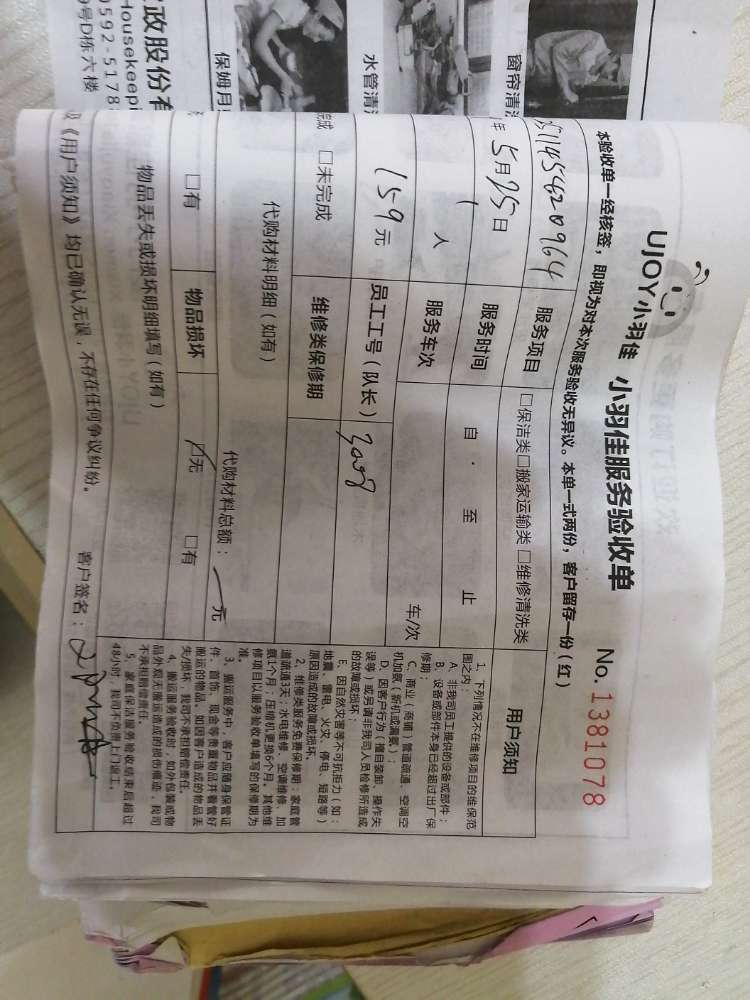 UJOY小羽佳 小羽佳服务验收单 No.1381078
本验收单一经核签，即视为对本次服务验收无异议。本单一式两份，客户留存一份（红）
服务项目 □保洁类□搬家运输类□维修清洗类 用户须知
年5月25日 服务时间 自 · 至 止
1人 服务车次 车/次
159元 员工工号（队长）
□未完成 维修类保修期
代购材料明细（如有） 代购材料总额： 元
□有 物品损坏 □无 □有
物品丢失或损坏明细填写（如有）
《用户须知》均已确认无误，不存在任何争议纠纷。 客户签名：
1、下列情况不在维修项目的维保范
围之内：
A、非我司员工提供的设备或部件；
B、设备或部件本身已经超过出厂保
修期；
C、商业（商铺）管道疏通、空调空
机加氨（新机或漏氨）；
D、因客户行为（擅自装卸、操作失
误等）或另请非我司人员检修所造成
的故障或损坏；
E、因自然灾害等不可抗拒力（如：
地震、雷电、火灾、停电、短路等）
原因造成的故障或损坏。
2、维修类服务免费保修期：家庭管
道疏通3天；水电维修、空调维修、加
氨1个月；压缩机更换6个月。其他维
修项目以服务验收单填写的保修期为
准。
3、搬运服务中，客户应随身保管证
件、首饰、现金等贵重物品并看管好
搬运的物品。如因客户造成的物品丢
失/损坏，我司不承担赔偿责任。
4、搬运服务验收时，如外包装或物
品外观无搬运造成的损伤痕迹，我司
不承担赔偿责任。
5、家庭保洁服务验收结束后超过
48小时，我司不负责上门返工。
政股份有
Housekeepi
0592-5178
号D栋六楼
保姆月
水管清
窗帘清